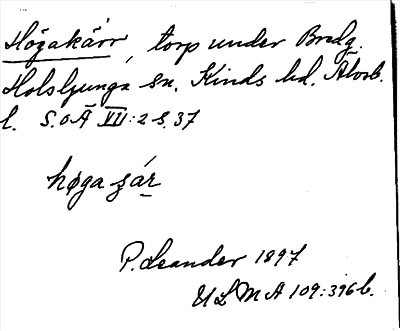 Högakärr, torp under Bredg.
Holsljunga sn. Kinds hd. Älvsb.
l. S.O.Ä VII:2 s. 37
høga ȥár
P. Leander 1897
ULMA 109:396 b.